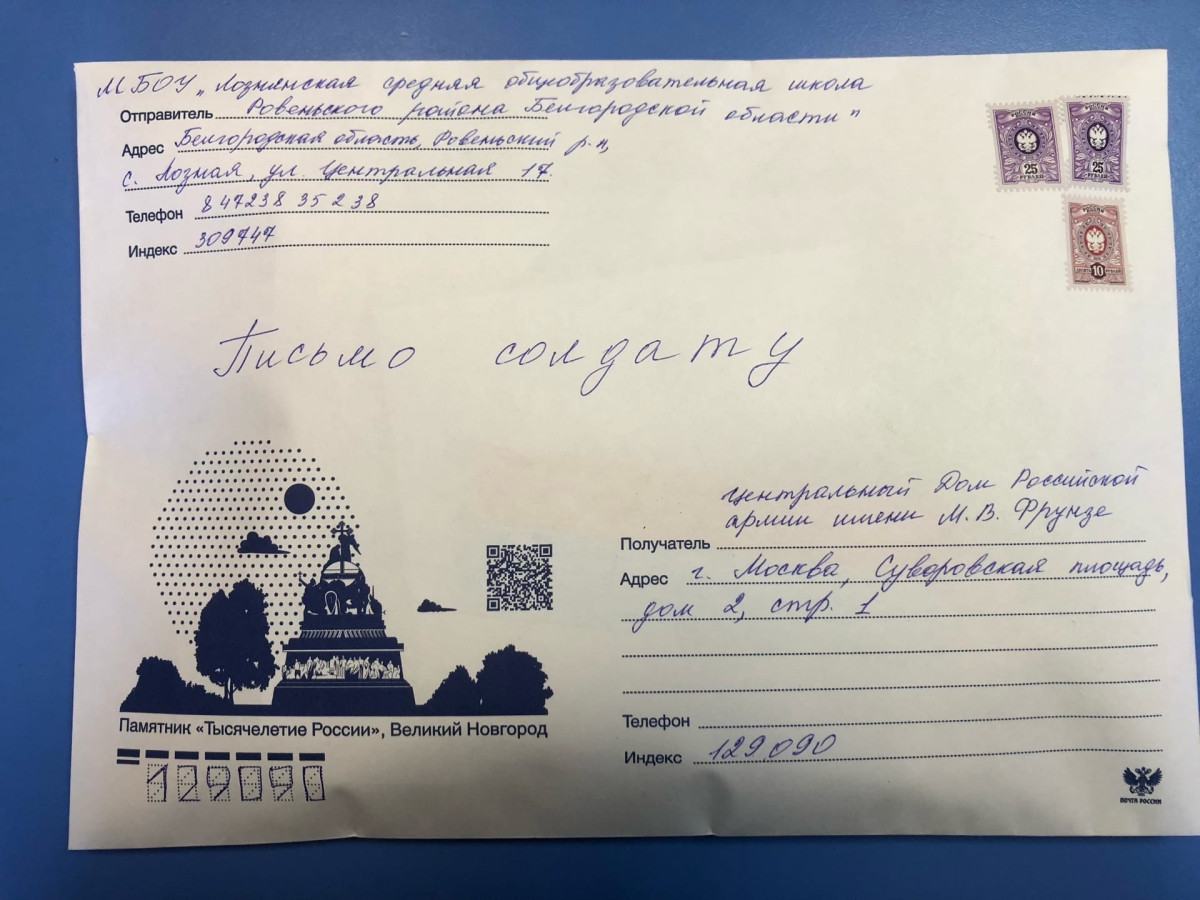 МБОУ „Лознянская средняя общеобразовательная школа
Отправитель Ровеньского района Белгородской области"
Адрес Белгородская область, Ровеньский р-н,
с. Лозная, ул. Центральная 17.
Телефон 8 47238 35 2 38
Индекс 309747
РОССИЯ
25
РУБЛЕЙ
РОССИЯ
25
РУБЛЕЙ
РОССИЯ
10
Письмо солдату
Центральный Дом Российской
армии имени М. В. Фрунзе
Получатель
Адрес г. Москва, Суворовская площадь,
дом 2, стр. 1
Телефон
Индекс 129090
Памятник «Тысячелетие России», Великий Новгород
129090
ПОЧТА РОССИИ